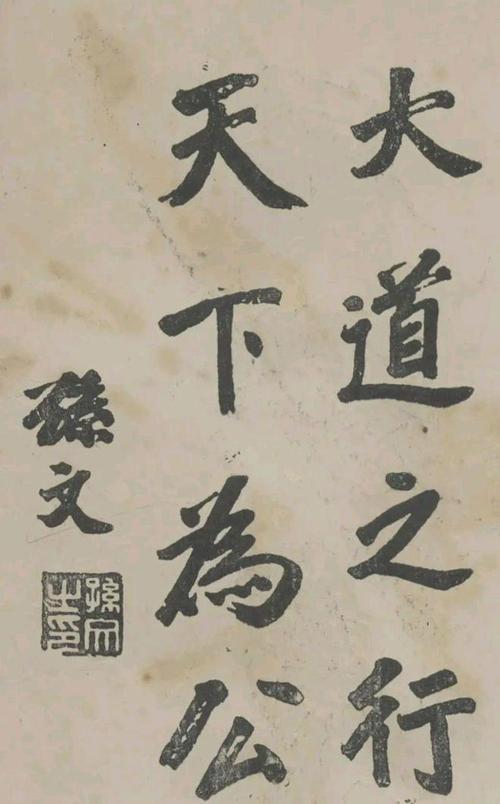 大道之行
天下為公
孫文
孫文之印